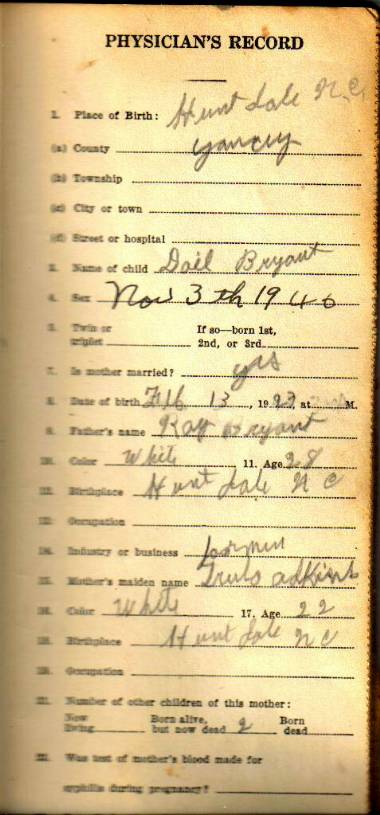 PHYSICIAN'S RECORD
1. Place of Birth: Huntdale N.C.
(a) County Yancey
(b) Township
(c) City or town
(d) Street or hospital
3. Name of child Dail Bryant
4. Sex Nov 3th 1940
5. Twin or triplet If so—born 1st, 2nd, or 3rd
7. Is mother married? yes
8. Date of birth Feb 13, 1923, at M.
9. Father's name Ray Bryant
10. Color White 11. Age 28
12. Birthplace Hunt dale N C
13. Occupation
14. Industry or business
15. Mother's maiden name Adkins
16. Color White 17. Age 22
18. Birthplace Hunt dale N C
19. Occupation
21. Number of other children of this mother:
Now living Born alive, but now dead 2 Born dead
22. Was test of mother's blood made for
syphilis during pregnancy?